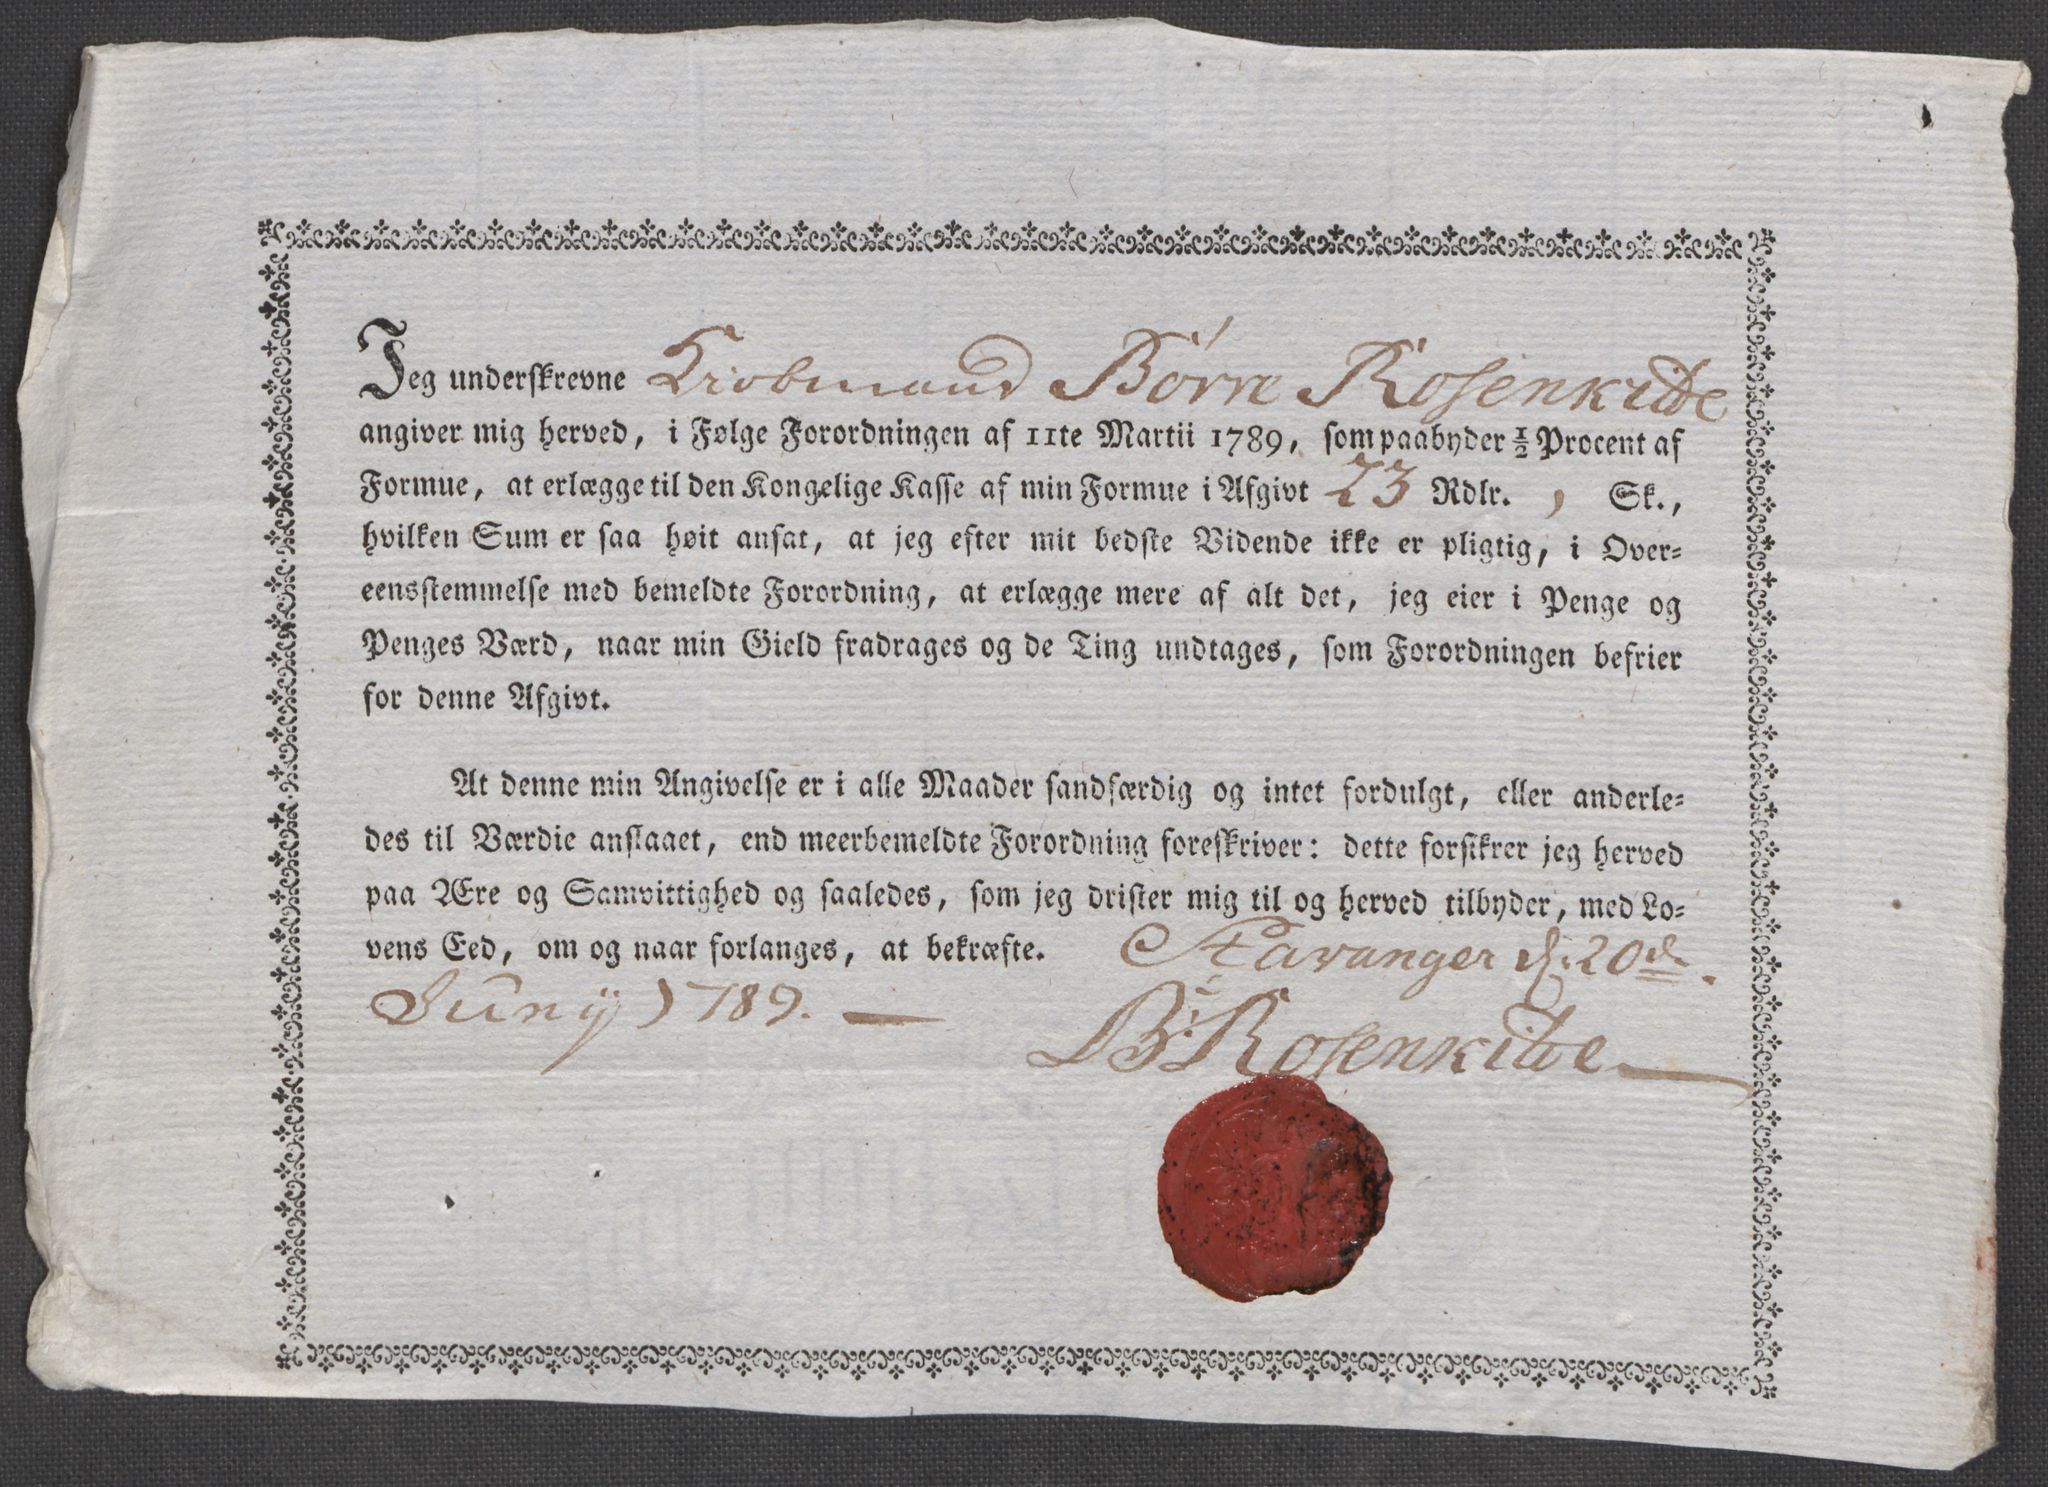 Jeg underskrevne Kiøbmand Børre Rosenkilde
angiver mig herved, i Følge Forordningen af 11te Martii 1789, som paabyder ½ Procent af
Formue, at erlægge til den Kongelige Kasse af min Formue i Afgivt 23 Rdlr. , Sk.,
hvilken Sum er saa høit ansat, at jeg efter mit bedste Vidende ikke er pligtig, i Over=
eensstemmelse med bemeldte Forordning, at erlægge mere af alt det, jeg eier i Penge og
Penges Værd, naar min Gield fradrages og de Ting undtages, som Forordningen befrier
for denne Afgivt.
At denne min Angivelse er i alle Maader sandfærdig og intet fordulgt, eller anderle=
des til Værdie anslaaet, end meerbemeldte Forordning foreskriver: dette forsikrer jeg herved
paa Ære og Samvittighed og saaledes, som jeg drister mig til og herved tilbyder, med Lo=
vens Eed, om og naar forlanges, at bekræfte. Stavanger d: 20de
Juny 1789. —
B: Rosenkilde